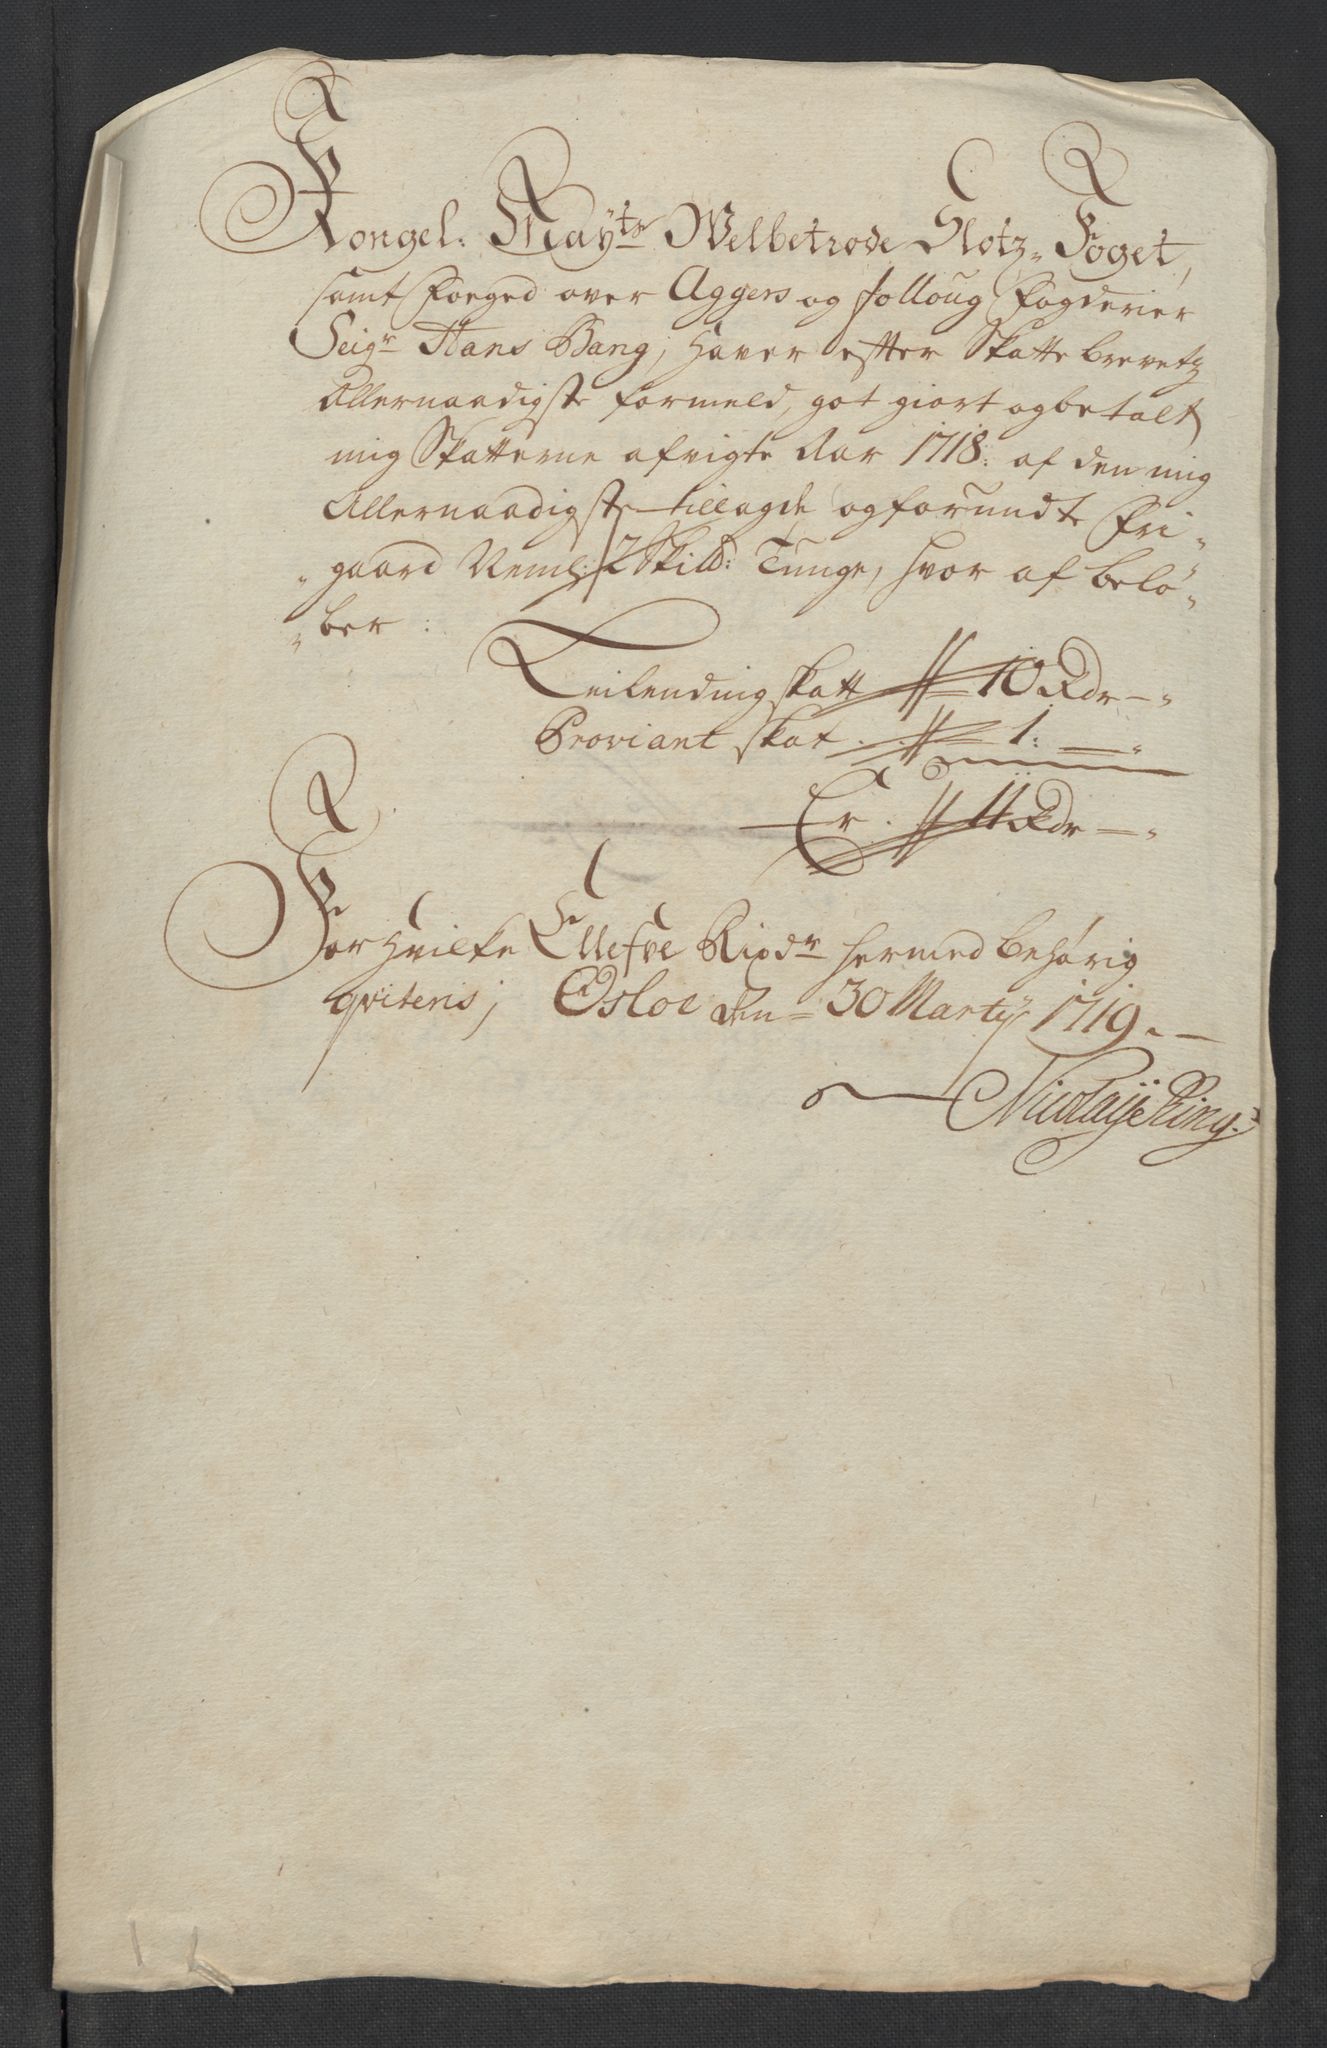 Kongel: Mayts Welbetrode Slotz- Foget,
samt Foeged over Aggers og folloug Fogderier
Seigr Hans Bang, haver efter Skatte brevetz
Allernaadigste formeld, got giort og betalt
mig Skatterne afvigte Aar 1718: af den mig
Allernaadigste tillagde og forundte Fri-
gaard Neml: 2 Skilld: Tunge, hvor af belø-
ber:
Leilendingskatt 10 Rdr -
Proviant skat . . 1: -
Er . 11 Rdr -
For hvilke Ellefve Rixdr hermed behørig
qviteris; Osloe den 30 Marty 1719.
Nicolaije Ring.